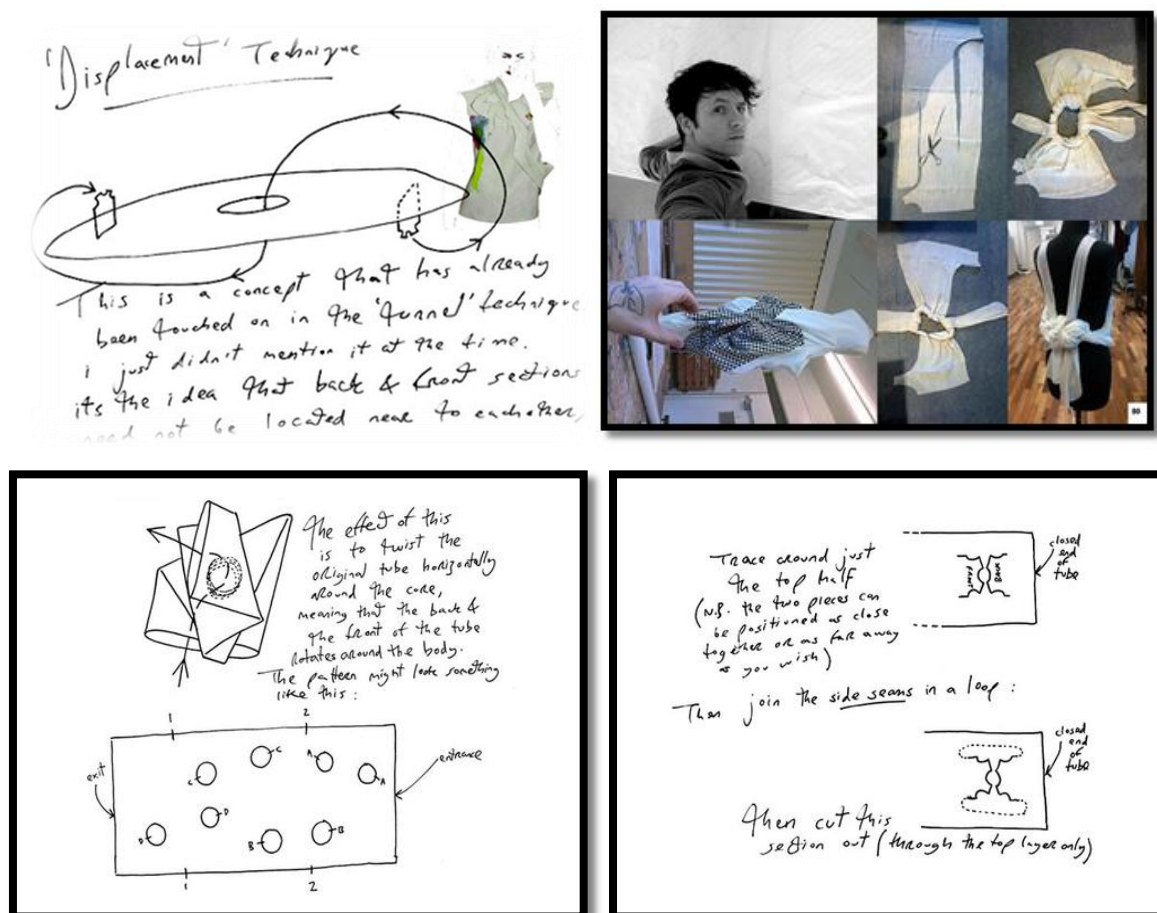 'Displacement' Technique
This is a concept that has already
been touched on in the 'tunnel' technique
i just didn't mention it at the time.
its the idea that back & front sections
need not be located near to eachother,
80
The effect of this
is to twist the
original tube horizontally
around the core,
meaning that the back &
the front of the tube
rotates around the body.
The pattern might look something
like this:
1 2
exit
entrance
C C A A
D D B B
1 2
Trace around just
the top half
(N.B. the two pieces can
be positioned as close
together or as far away
as you wish)
FRONT BACK
closed
end
of
tube
Then join the side seams in a loop:
closed
end
of
tube
then cut this
section out (through the top layer only)